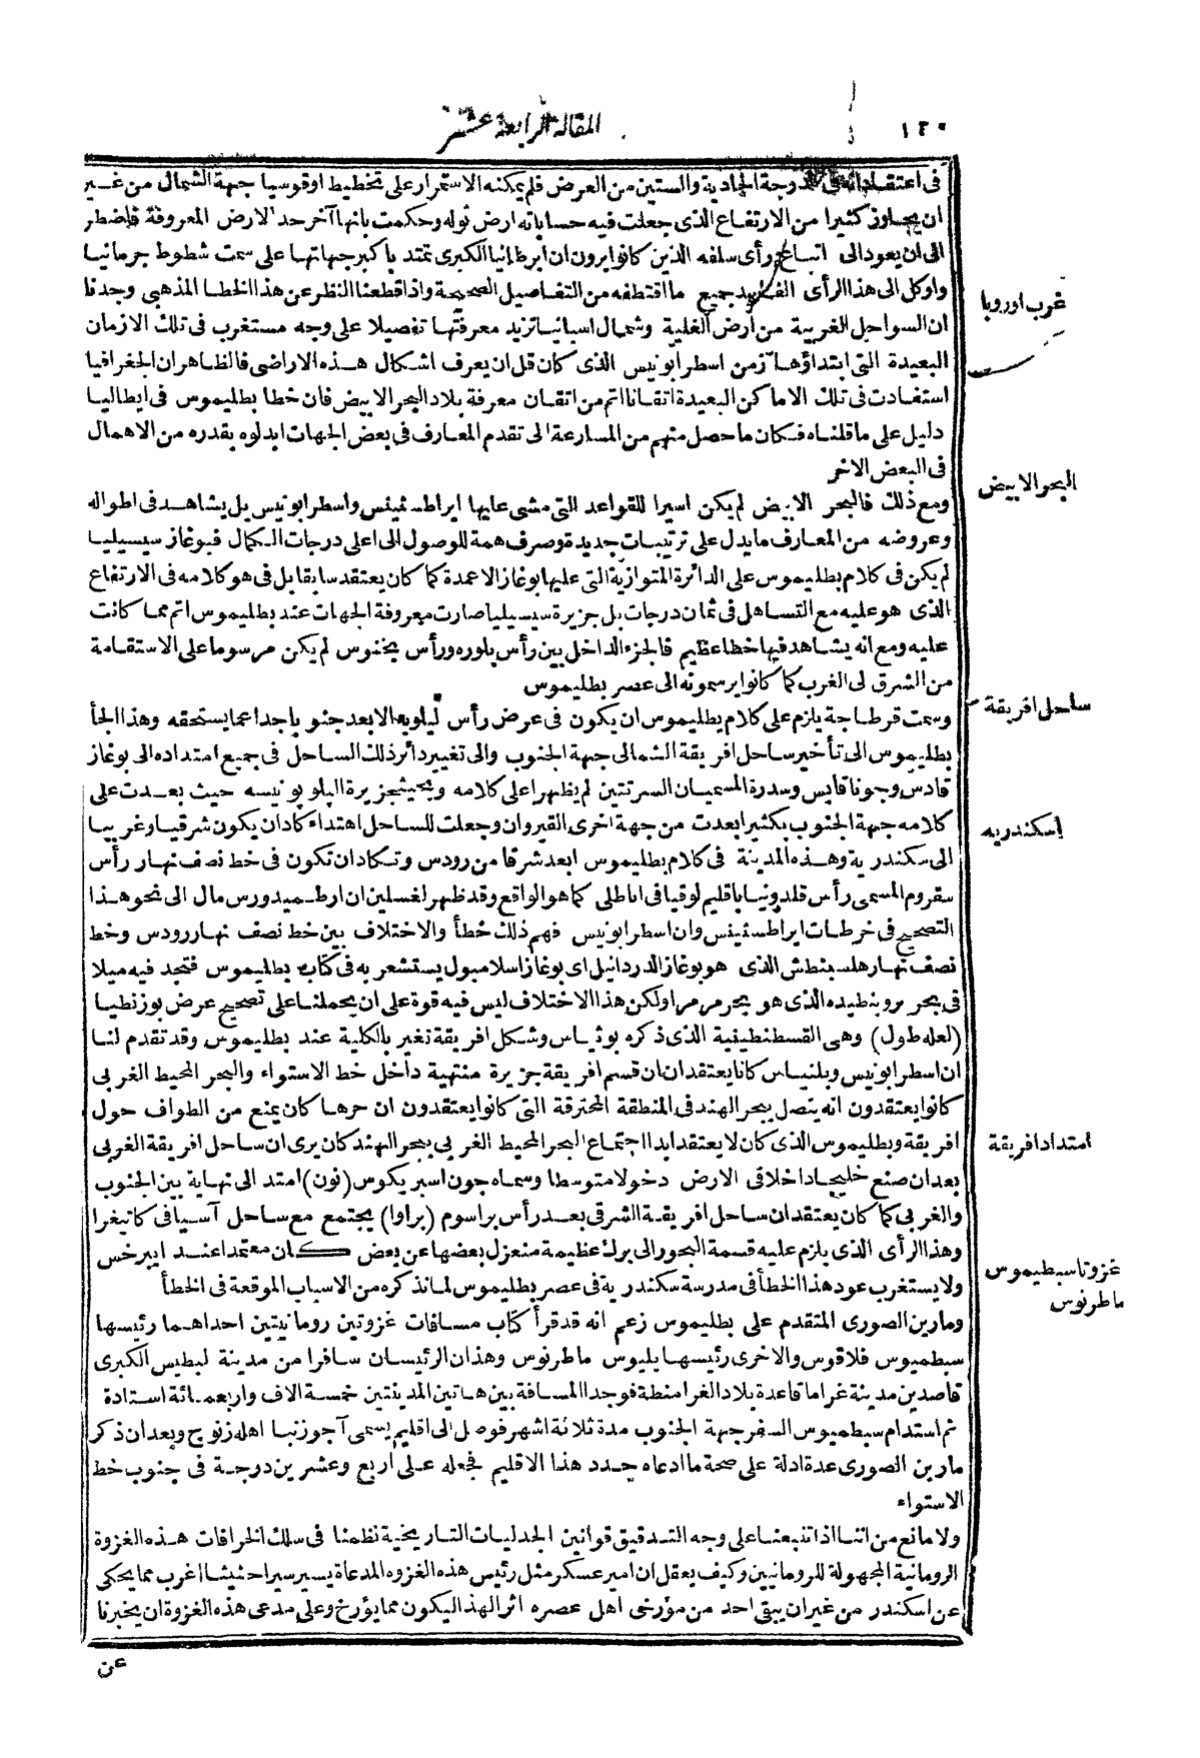 ١٢٠
المقالة الرابعة عشر
فى اعتقاداته على الدرجة الحادية والستين من العرض فلم يمكنه الاستمرار على تخطيط اوقوسيا جهة الشمال من غير
ان يجاوز كثيرا من الارتفاع الذى جعلت فيه حساباته ارض ثوله وحكمت بانها آخر حد الارض المعروفة فاضطر
الى ان يعود الى اتباع رأى سلفه الذين كانوا يرون ان ابرطانيا الكبرى تمتد با كبر جهاتها على سمت شطوط جرمانيا
واوكل الى هذا الرأى الفاسد جميع ما اقتطفه من التفاصيل الصحيحة واذا قطعنا النظر عن هذا الخطا المذهبى وجدنا
غرب اوروبا
ان السواحل الغربية من أرض الغلية وشمال اسبانيا تزيد معرفتها تفصيلا على وجه مستغرب فى تلك الازمان
البعيدة التى ابتداؤها زمن اسطرابونيس الذى كان قل ان يعرف اشكال هذه الاراضى فالظاهر ان الجغرافيا
استفادت فى تلك الاماكن البعيدة اتقانا اتم من اتقان معرفة بلاد البحر الابيض فان خطا بطليموس فى ايطاليا
دليل على ما قلناه فكان ما حصل منهم من المسارعة الى تقدم المعارف فى بعض الجهات ابدلوه بقدره من الاهمال
فى البعض الاخر
البحر الابيض
ومع ذلك فالبحر الابيض لم يكن اسيرا للقواعد التى مشى عليها ايراطستينس واسطرابونيس بل يشاهد فى اطواله
وعروضه من المعارف ما يدل على ترتيبات جديدة وصرف همة للوصول الى اعلى درجات الكمال فبوغاز سيسيليا
لم يكن فى كلام بطليموس على الدائرة المتوازية التى عليها بوغاز الاعمدة كما كان يعتقد سابقا بل فى هو كلامه فى الارتفاع
الذى هو عليه مع التساهل فى ثمان درجات بل جزيرة سيسيليا صارت معروفة الجهات عند بطليموس اتم مما كانت
عليه ومع انه يشاهد فيها خطا عظيم فالجزء الداخل بين رأس پلوره ورأس پخنوس لم يكن مرسوما على الاستقامة
من الشرق لى الغرب كما كانوا يرسمونه الى عصر بطليموس
ساحل افريقة
وسمت قرطاجة يلزم على كلام بطليموس ان يكون فى عرض رأس ليلوبه الا بعد جنوبا جدا عما يستحقه وهذا الجأ
بطليموس الى تأخير ساحل افريقة الشمالى جهة الجنوب والى تغيير دائر ذلك الساحل فى جميع امتداده الى بوغاز
قادس وجونا قابس وسدرة المسميان السرتتين لم يظهرا على كلامه وبحيث جزيرة الپلوپونيسه حيث بعدت على
كلامه جهة الجنوب بكثير ابعدت من جهة اخرى القيروان وجعلت للساحل اهتداء كاد ان يكون شرقيا وغربيا
اسكندريه
الى سكندرية وهذه المدينة فى كلام بطليموس ابعد شرقا من رودس وتكاد ان تكون فى خط نصف نهار رأس
سقروم المسمى رأس قلدونيا باقليم لوقيا فى اناطلى كما هو الواقع وقد ظهر لغسلين ان ارطميدورس مال الى نحو هذا
التصحيح فى خرطات ايراطستينس وان اسطرابونيس فهم ذلك خطأ والاختلاف بين خط نصف نهار رودس وخط
نصف نهار هلسبنطش الذى هو بوغاز الدردانيل اى بوغاز اسلامبول يستشعر به فى كتاب بطليموس فتجد فيه ميلا
فى بحر پروبنطيده الذى هو بحر مرمرا ولكن هذا الاختلاف ليس فيه قوة على ان يحملنا على تصحيح عرض بوزنطيا
(لعله طول) وهى القسطنطينية الذى ذكره بوثياس وشكل افريقة تغير بالكلية عند بطليموس وقد تقدم لنا
ان اسطرابونيس وبلنياس كانا يعتقدان ان قسم افريقة جزيرة منتهية داخل خط الاستواء والبحر المحيط الغربى
كانوا يعتقدون انه يتصل ببحر الهند فى المنطقة المحترقة التى كانوا يعتقدون ان حرها كان يمنع من الطواف حول
امتداد افريقة
افريقة وبطليموس الذى كان لا يعتقد ابدا اجتماع البحر المحيط الغربى ببحر الهند كان يرى ان ساحل افريقة الغربى
بعد ان صنع خليجا داخلا فى الارض دخولا متوسطا وسماه جون اسبريكوس (نون) امتد الى نهاية بين الجنوب
والغربى كما كان يعتقد ان ساحل افريقة الشرقى بعد رأس براسوم (براوا) يجتمع مع ساحل آسيا فى كاتيغرا
وهذا الرأى الذى يلزم عليه قسمة البحور الى برك عظيمة منعزل بعضها عن بعض كان معتمدا عند ايبرخس
ولا يستغرب عود هذا الخطأ فى مدرسة سكندرية فى عصر بطليموس لما نذكره من الاسباب الموقعة فى الخطأ
غزوتا سبطيموس
ماطرنوس
ومارين الصورى المتقدم على بطليموس زعم انه قد قرأ كتاب مسافات غزوتين رومانيتين احداهما رئيسها
سبطميوس فلاقوس والاخرى رئيسها يليوس ماطرنوس وهذان الرئيسان سافرا من مدينة لبطيس الكبرى
قاصدين مدينة غراما قاعدة بلاد الغرامنطة فوجدا المسافة بين هاتين المدينتين خمسة الاف واربعمائة استادة
ثم استدام سبطميوس السفر جهة الجنوب مدة ثلاثة اشهر فوصل الى اقليم يسمى آجوزنبا اهله زنوج وبعد ان ذكر
مارين الصورى عدة ادلة على صحة ما ادعاه حدد هذا الاقليم فجعله على أربع وعشرين درجة فى جنوب خط
الاستواء
ولا مانع من اننا اذا تتبعنا على وجه التدقيق قوانين الجدليات التاريخية نظمنا فى سلك الخرافات هذه الغزوة
الرومانية المجهولة للرومانيين وكيف يعقل ان امير عسكر مثل رئيس هذه الغزوه المدعاة يسير سيرا حثيثا اغرب مما يحكى
عن اسكندر من غير ان يبقى احد من مؤرخى اهل عصره اثر الهذا ليكون مما يؤرخ وعلى مدعى هذه الغزوة ان يخبرنا
عن